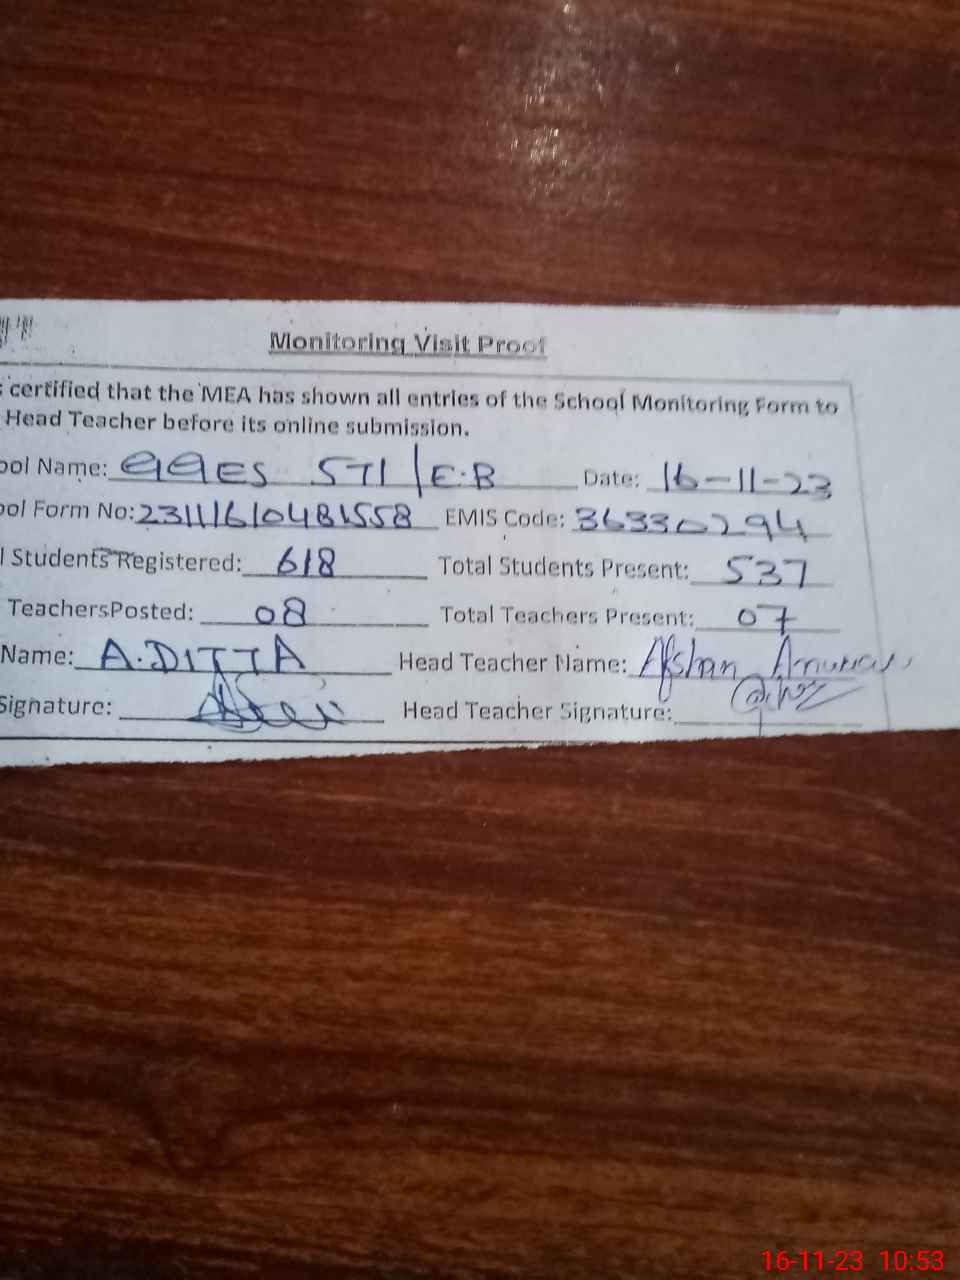 Monitoring Visit Proof
certified that the MEA has shown all entries of the School Monitoring Form to
Head Teacher before its online submission.
ool Name: GGES 571/E.B Date: 16-11-23
ool Form No: 23111610481558 EMIS Code: 36330294
l Students Registered: 618 Total Students Present: 537
TeachersPosted: 08 Total Teachers Present: 07
Name: A.DITTA Head Teacher Name: Afshan
Signature: Head Teacher Signature:
16-11-23 10:53